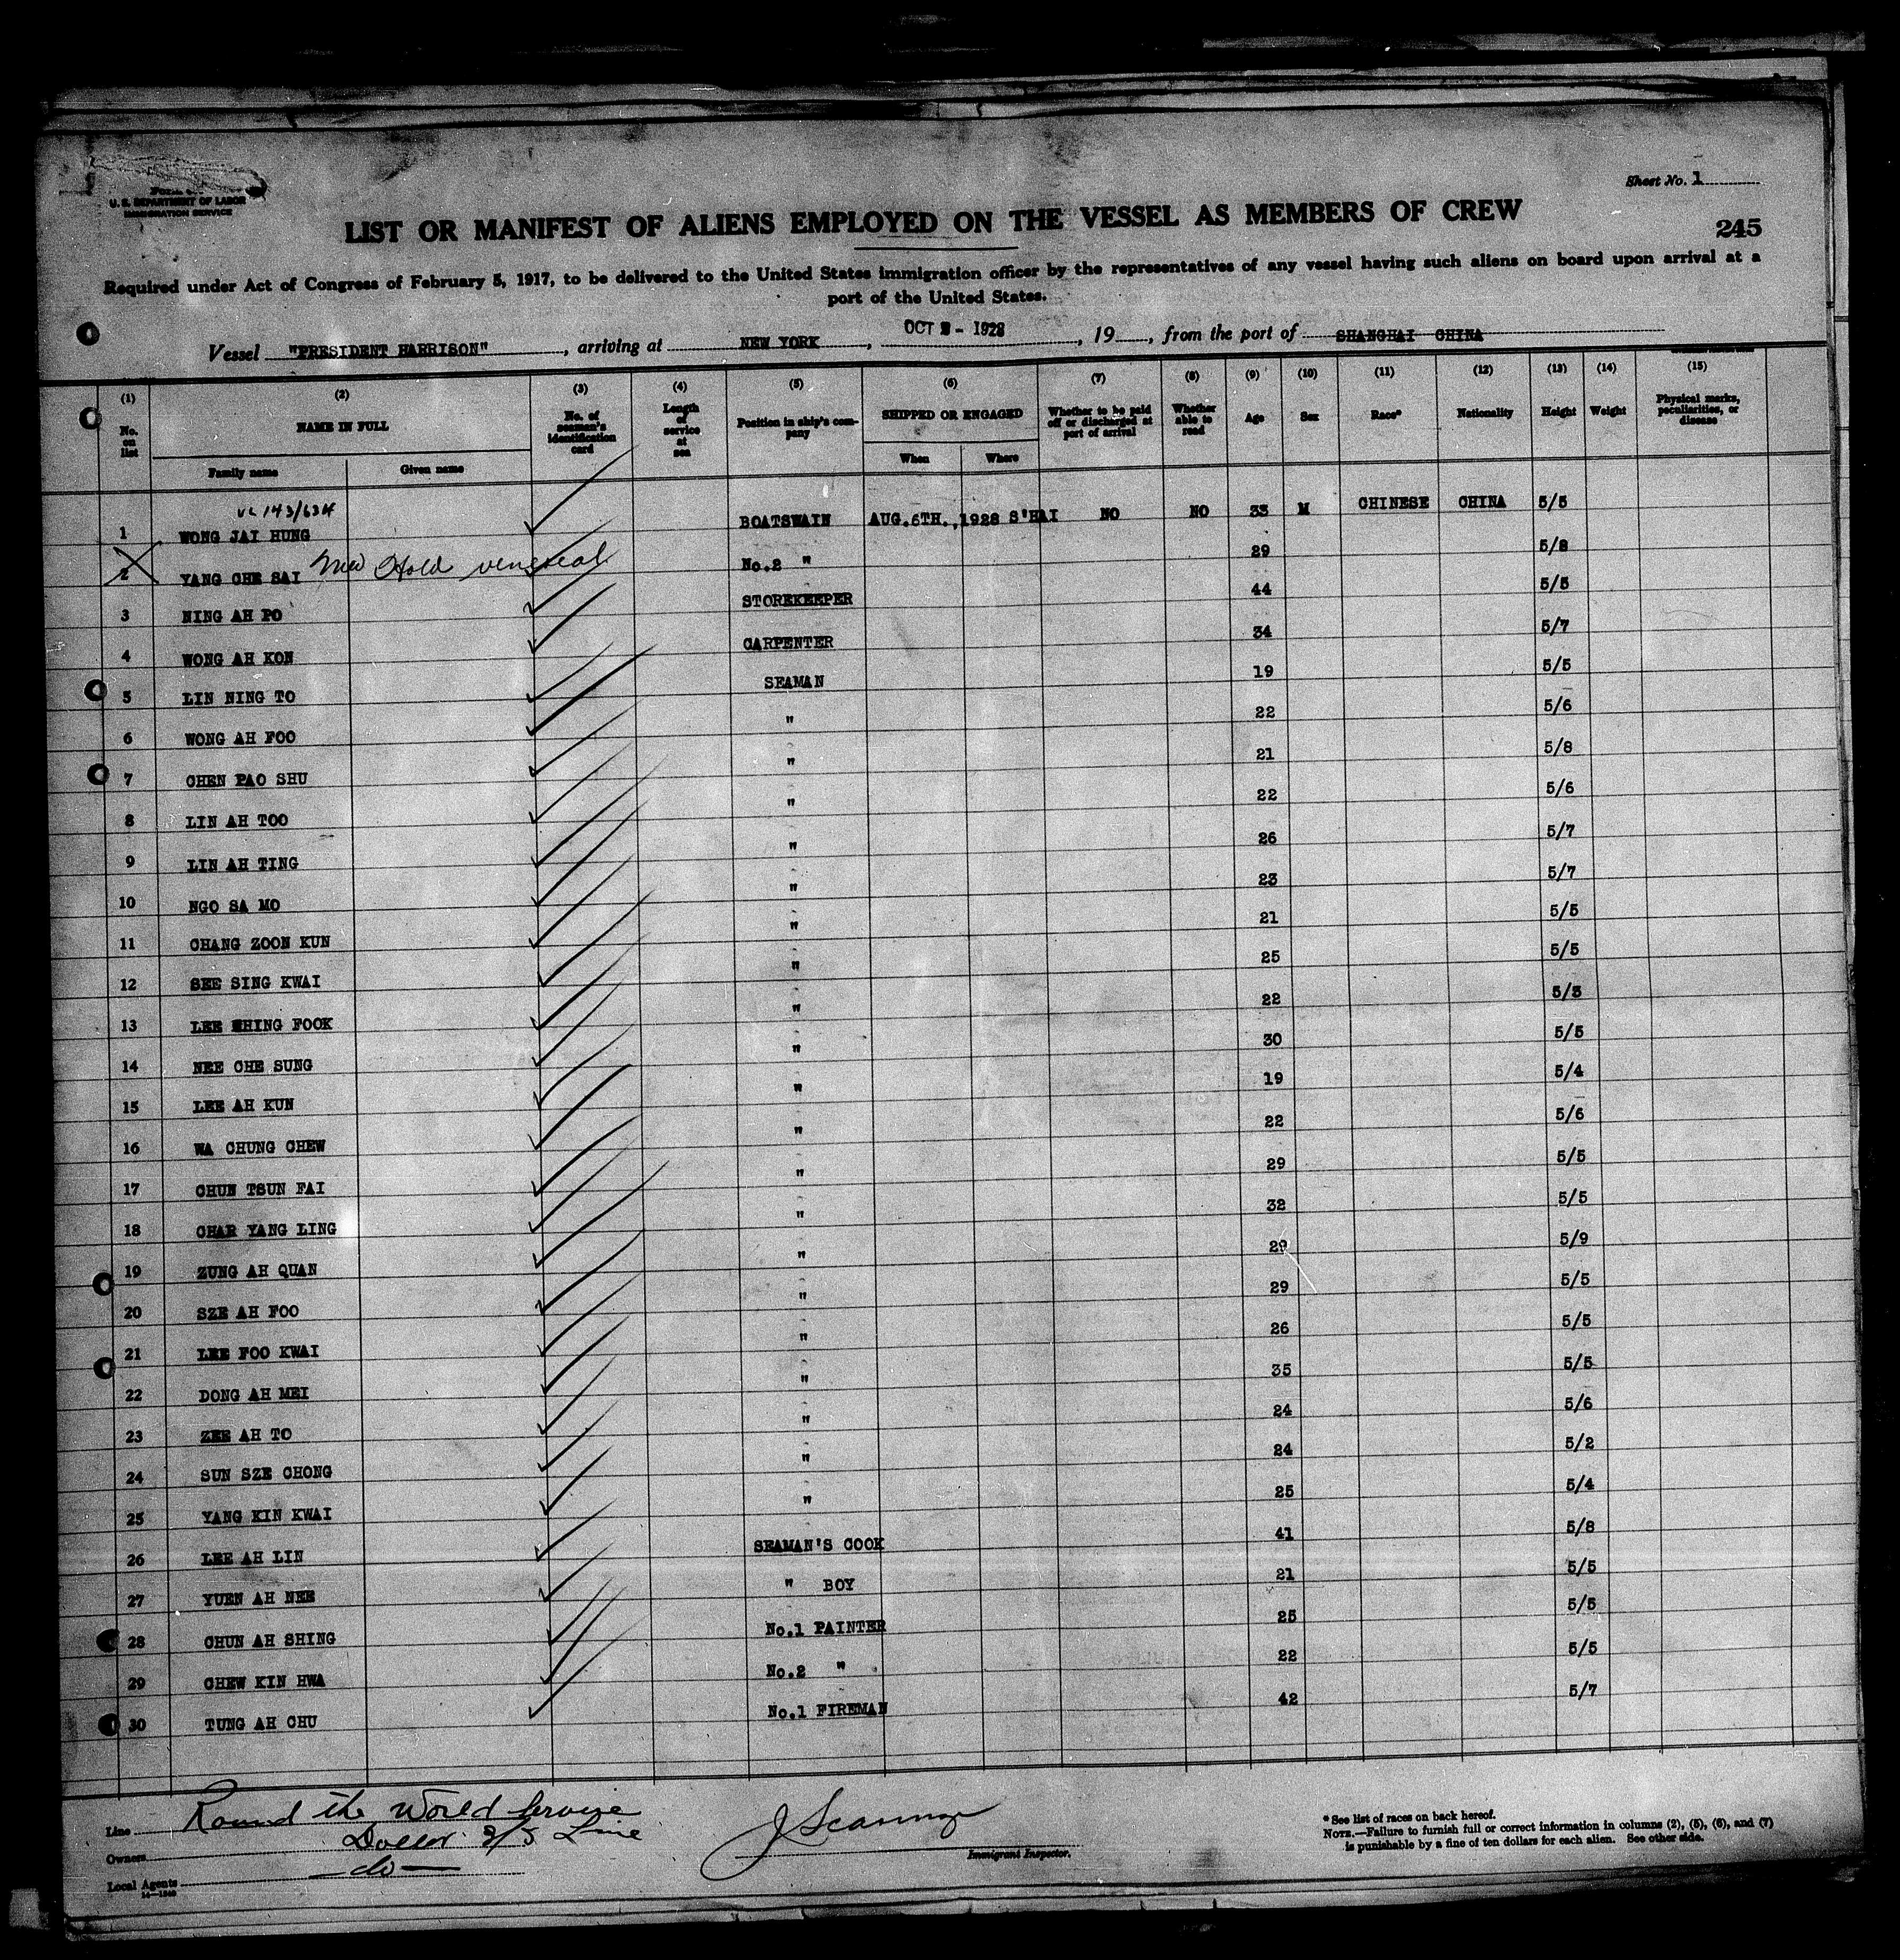 U. S. DEPARTMENT OF LABOR
IMMIGRATION SERVICE
Sheet No. 1
LIST OR MANIFEST OF ALIENS EMPLOYED ON THE VESSEL AS MEMBERS OF CREW
245
Required under Act of Congress of February 5, 1917, to be delivered to the United States immigration officer by the representatives of any vessel having such aliens on board upon arrival at a
port of the United States.
Vessel "PRESIDENT HARRISON", arriving at NEW YORK, OCT - 1928, 19, from the port of SHANGHAI CHINA
(1) (2) (3) (4) (5) (6) (7) (8) (9) (10) (11) (12) (13) (14) (15)
No. on list NAME IN FULL No. of seaman's identification card Length of service at sea Position in ship's company SHIPPED OR ENGAGED Whether to be paid off or discharged at port of arrival Whether able to read Age Sex Race* Nationality Height Weight Physical marks, peculiarities, or disease
Family name Given name When Where
VL 143/634
1 WONG JAI HUNG BOATSWAIN AUG. 6TH., 1928 S'HAI NO NO 33 M CHINESE CHINA 5/5
2 YANG CHE SAI Med Hold venereal No.2 " 29 5/8
3 NING AH PO STOREKEEPER 44 5/5
4 WONG AH KON CARPENTER 34 5/7
5 LIN NING TO SEAMAN 19 5/5
6 WONG AH FOO " 22 5/6
7 CHEN PAO SHU " 21 5/8
8 LIN AH TOO " 22 5/6
9 LIN AH TING " 26 5/7
10 NGO SA MO " 23 5/7
11 CHANG ZOON KUN " 21 5/5
12 SEE SING KWAI " 25 5/5
13 LEE SHING FOOK " 22 5/3
14 NEE CHE SUNG " 30 5/5
15 LEE AH KUN " 19 5/4
16 WA CHUNG CHEW " 22 5/6
17 CHUN TSUN FAI " 29 5/5
18 CHAR YANG LING " 32 5/5
19 ZUNG AH QUAN " 29 5/9
20 SZE AH FOO " 29 5/5
21 LEE FOO KWAI " 26 5/5
22 DONG AH MEI " 35 5/5
23 ZEE AH TO " 24 5/6
24 SUN SZE CHONG " 24 5/2
25 YANG KIN KWAI " 25 5/4
26 LEE AH LIN SEAMAN'S COOK 41 5/8
27 YUEN AH NEE " BOY 21 5/5
28 CHUN AH SHING No.1 PAINTER 25 5/5
29 CHEW KIN HWA No.2 " 22 5/5
30 TUNG AH CHU No.1 FIREMAN 42 5/7
Line Round the World Service
Owners Dollar S/S Line
Local Agents —do—
14—1240
Immigrant Inspector.
* See list of races on back hereof.
NOTE.—Failure to furnish full or correct information in columns (2), (5), (6), and (7)
is punishable by a fine of ten dollars for each alien. See other side.